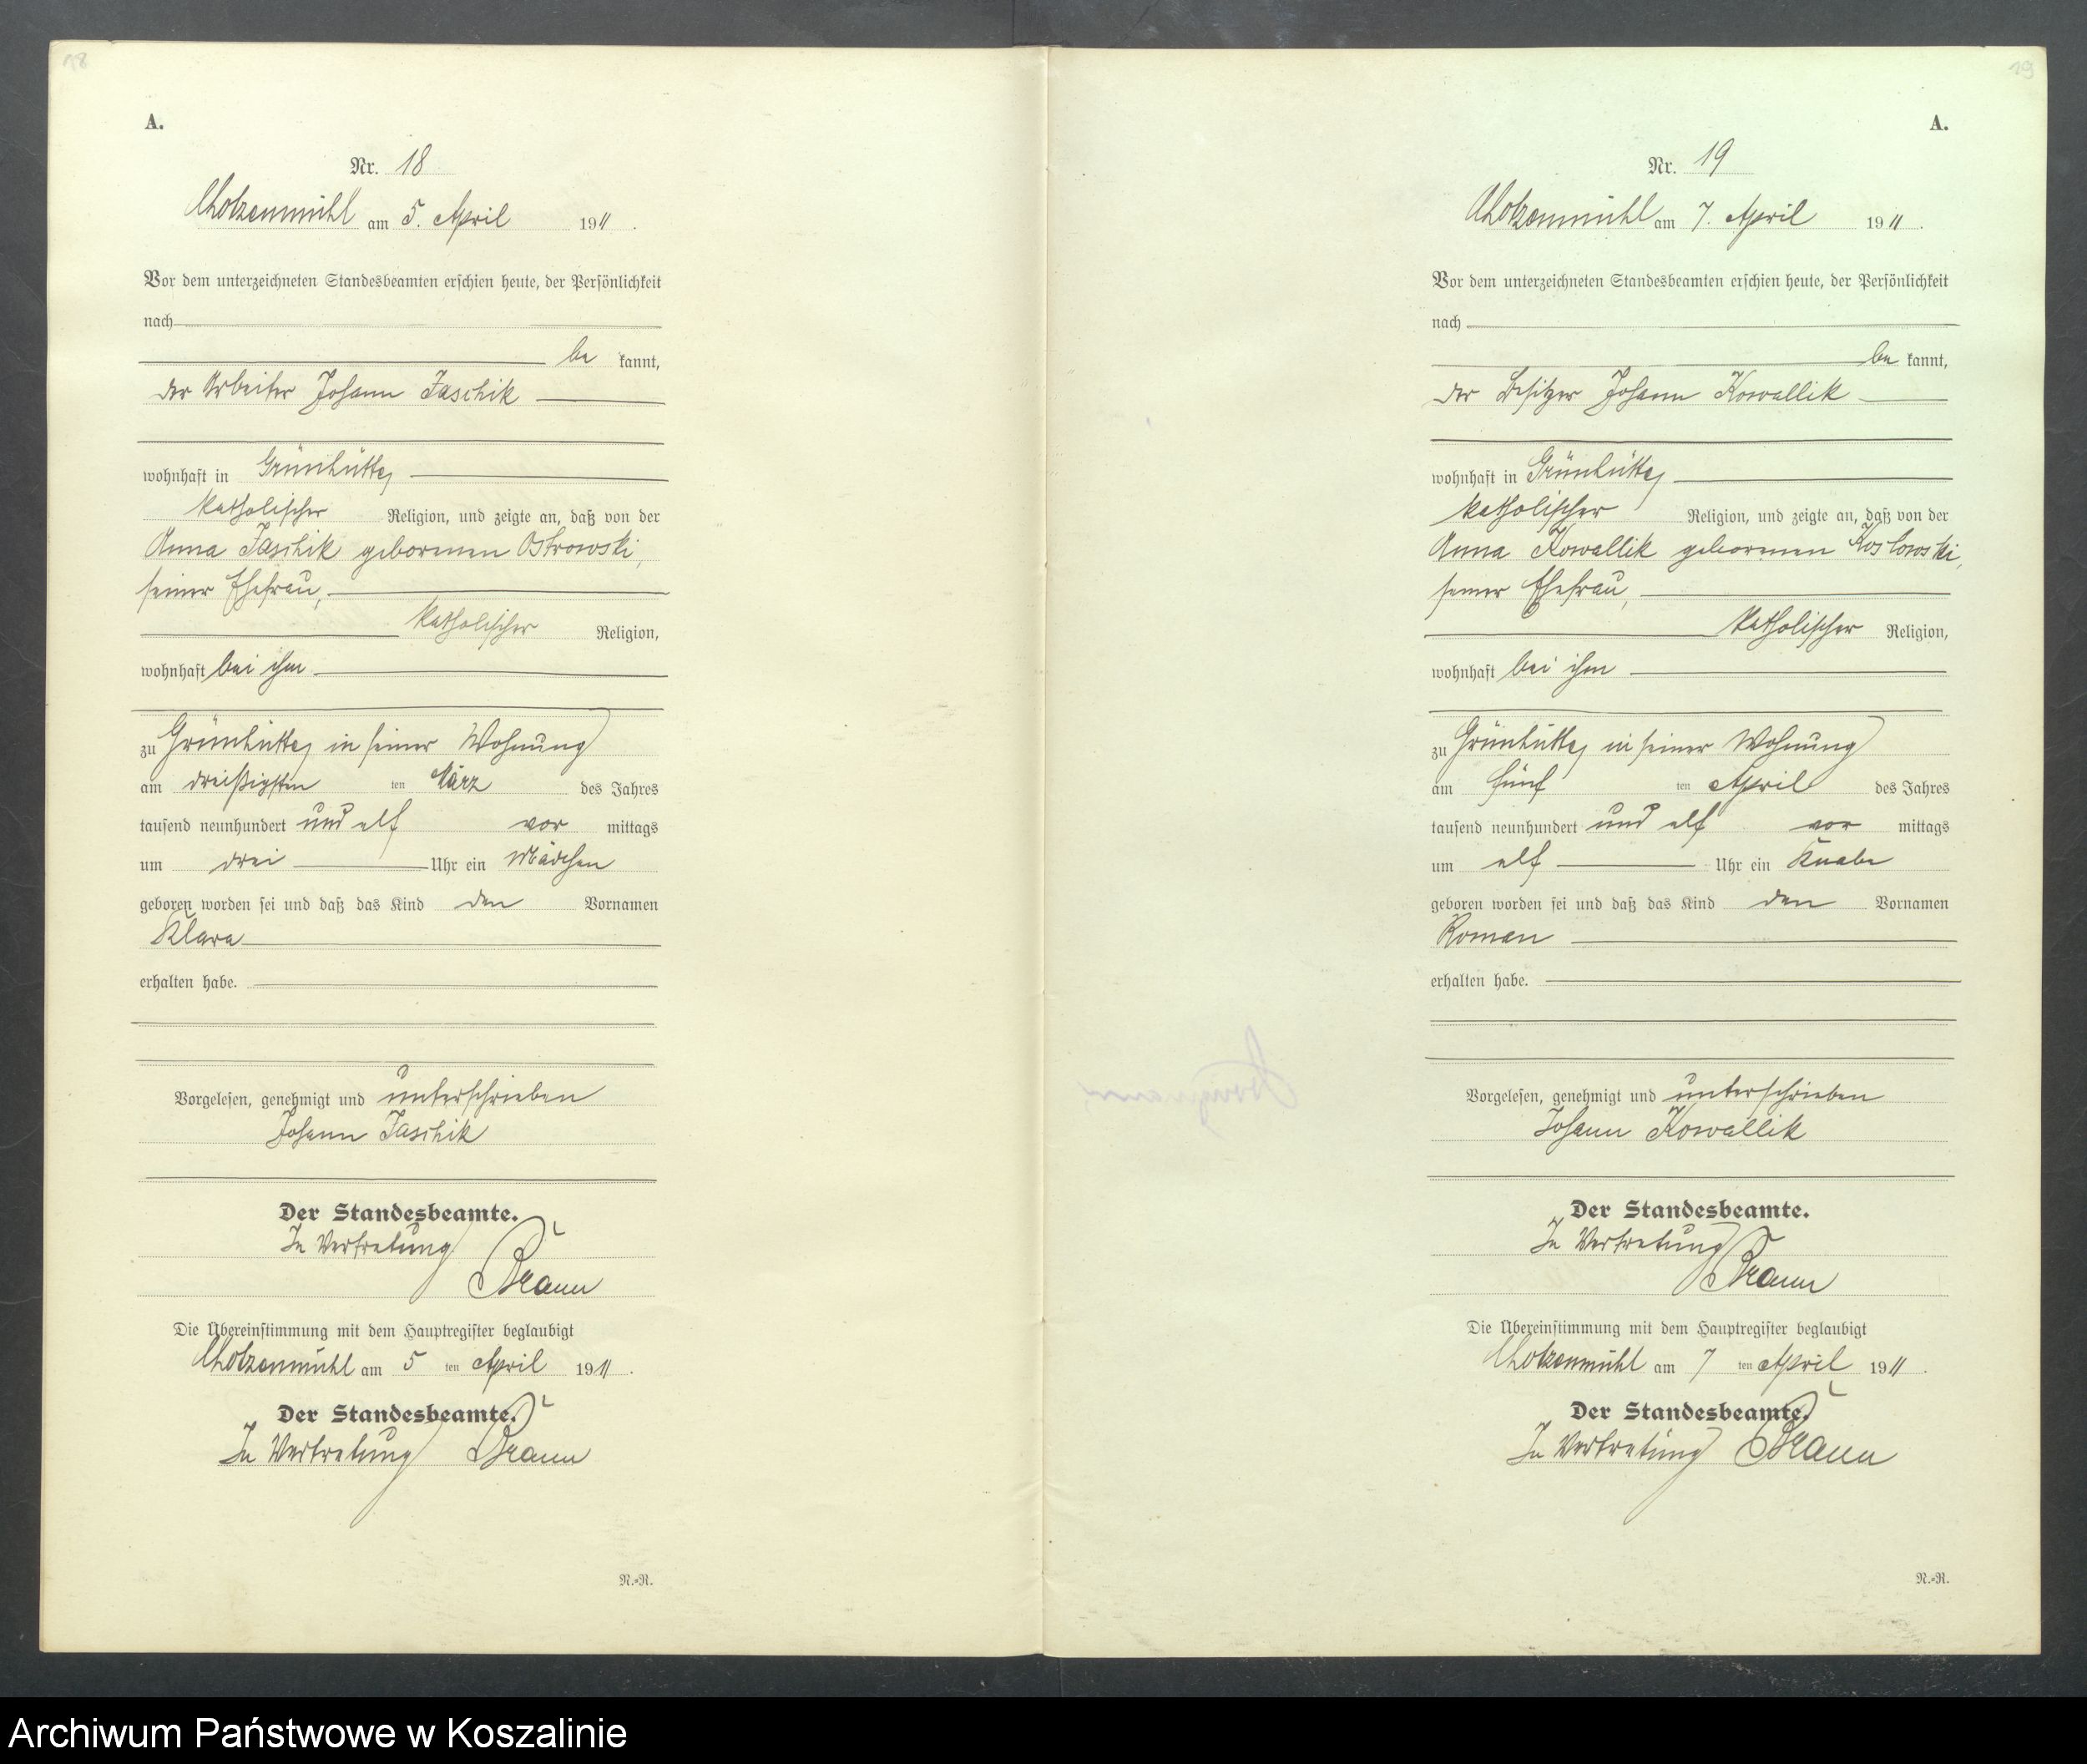 18
A.
Nr. 18
Chotzenmühl am 5. April 1911.
Vor dem unterzeichneten Standesbeamten erschien heute, der Persönlichkeit
nach
be kannt,
der Arbeiter Johann Jaschik
wohnhaft in Grünhütte,
katholischer Religion, und zeigte an, daß von der
Anna Jaschik geborenen Ostrowski,
seiner Ehefrau,
katholischer Religion,
wohnhaft bei ihm
zu Grünhütte, in seiner Wohnung
am dreißigsten ten März des Jahres
tausend neunhundert und elf vor mittags
um drei Uhr ein Mädchen
geboren worden sei und daß das Kind den Vornamen
Klara
erhalten habe.
Vorgelesen, genehmigt und unterschrieben
Johann Jaschik
Der Standesbeamte.
In Vertretung
Braun
Die Übereinstimmung mit dem Hauptregister beglaubigt
Chotzenmühl am 5 ten April 1911.
Der Standesbeamte.
In Vertretung Braun
N.=R.
19
A.
Nr. 19
Chotzenmühl am 7. April 1911.
Vor dem unterzeichneten Standesbeamten erschien heute, der Persönlichkeit
nach
be kannt,
der Besitzer Johann Kowallik
wohnhaft in Grünhütte,
katholischer Religion, und zeigte an, daß von der
Anna Kowallik geborenen Koslowski,
seiner Ehefrau,
katholischer Religion,
wohnhaft bei ihm
zu Grünhütte, in seiner Wohnung
am fünf ten April des Jahres
tausend neunhundert und elf vor mittags
um elf Uhr ein Knabe
geboren worden sei und daß das Kind den Vornamen
Roman
erhalten habe.
Vorgelesen, genehmigt und unterschrieben
Johann Kowallik
Der Standesbeamte.
In Vertretung
Braun
Die Übereinstimmung mit dem Hauptregister beglaubigt
Chotzenmühl am 7 ten April 1911.
Der Standesbeamte.
In Vertretung Braun
N.=R.
Archiwum Państwowe w Koszalinie